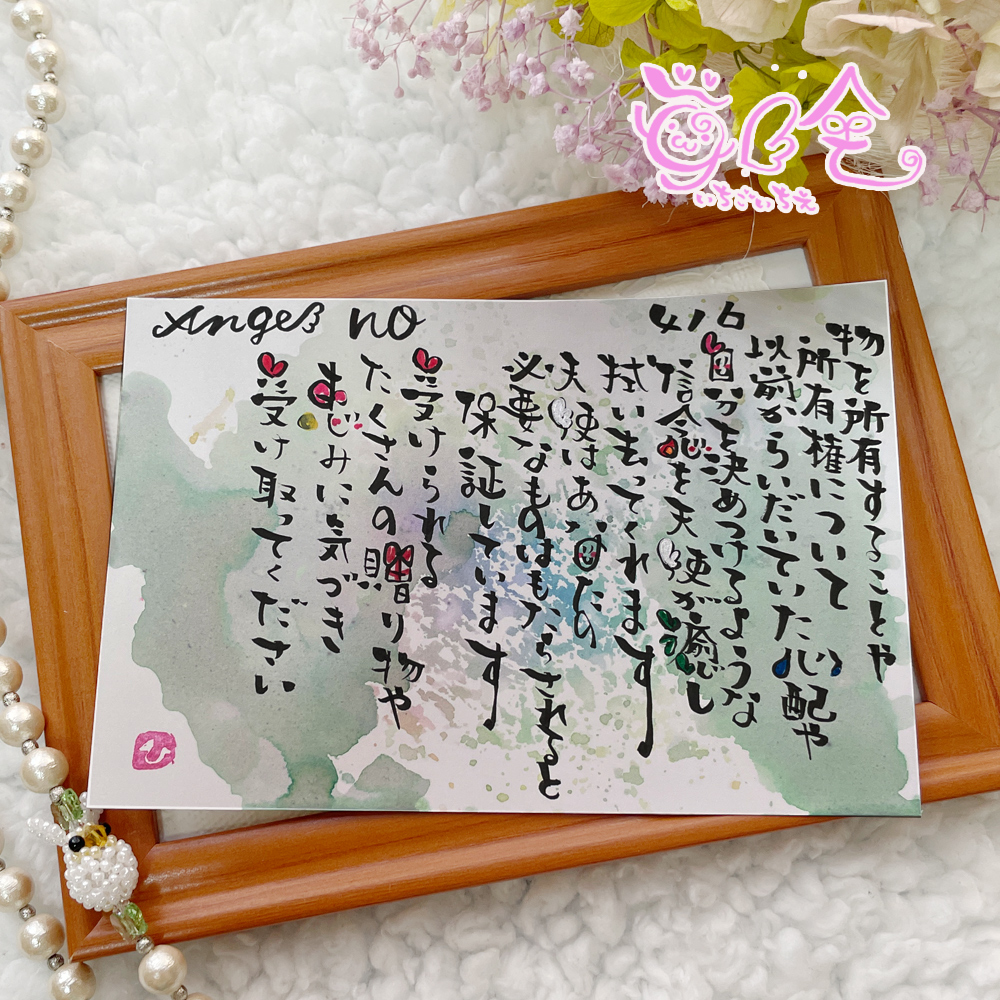 Angel no 416
物を所有することや
所有権について
以前からいだいていた心配や
自分を決めつけるような
信念を天使が癒し
拭い去ってくれます
天使はあなたの
必要なものはもたらされると
保証しています
受けられる
たくさんの贈り物や
まじみに気づき
受け取ってください
苺心絵
いちごいちえ